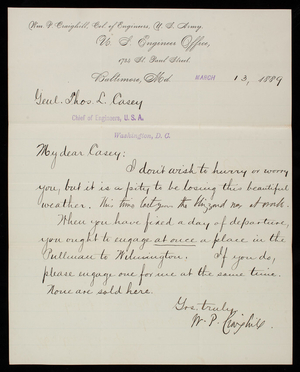 Wm P. Craighill, Col. of Engineers, U. S. Army.
U. S. Engineer Office,
1735 St. Paul Street
Baltimore, Md. MARCH 13, 1889
Genl. Thos. L. Casey
Chief of Engineers, U.S.A.
Washington, D.C.
My dear Casey:
I don't wish to hurry or worry
you, but it is a pity to be losing this beautiful
weather. This time last year the blizzard was at work.
When you have fixed a day of departure,
you ought to engage at once a place in the
Pullman to Wilmington. If you do,
please engage one for me at the same time.
None are sold here.
Yrs. truly,
W. P. Craighill